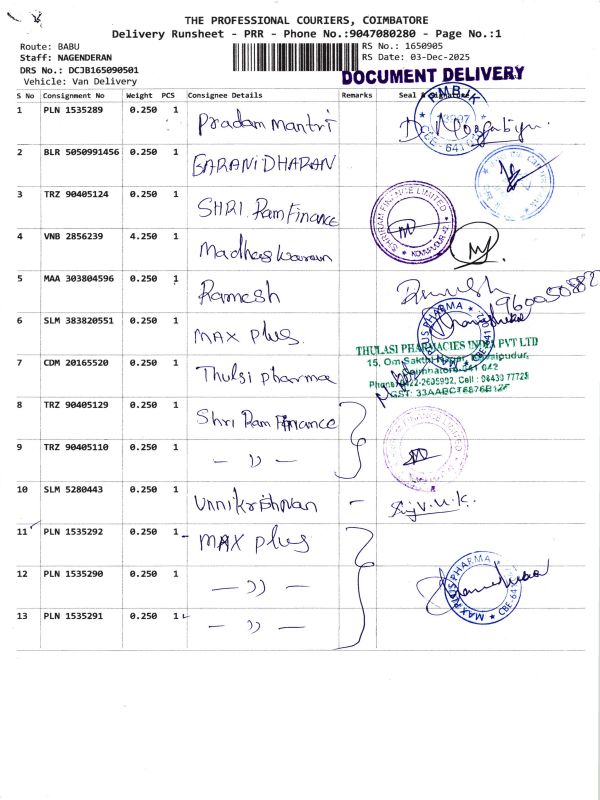 THE PROFESSIONAL COURIERS, COIMBATORE
Delivery Runsheet - PRR - Phone No.:9047080280 - Page No.:1
Route: BABU
Staff: NAGENDERAN
DRS No.: DCJB165090501
Vehicle: Van Delivery
RS No.: 1650905
RS Date: 03-Dec-2025
DOCUMENT DELIVERY
S No Consignment No Weight PCS Consignee Details Remarks Seal & Signature
1 PLN 1535289 0.250 1 Pradam Mantri
2 BLR 5050991456 0.250 1 BARANIDHARAN
3 TRZ 90405124 0.250 1 SHRI Ram Finance
SHRIRAM FINANCE LIMITED
4 VNB 2856239 4.250 1
5 MAA 303804596 0.250 1 Ramesh
6 SLM 383820551 0.250 1 MAX plus
MAX PLUS PHARMA
THULASI PHARMACIES INDIA PVT LTD
7 CDM 20165520 0.250 1 Thulsi pharma
8 TRZ 90405129 0.250 1 Shri Ram Finance
9 TRZ 90405110 0.250 1 — )) —
10 SLM 5280443 0.250 1 Unnikrishnan -
11 PLN 1535292 0.250 1 MAX plus
12 PLN 1535290 0.250 1 — )) —
MAX PLUS PHARMA
13 PLN 1535291 0.250 1 — )) —